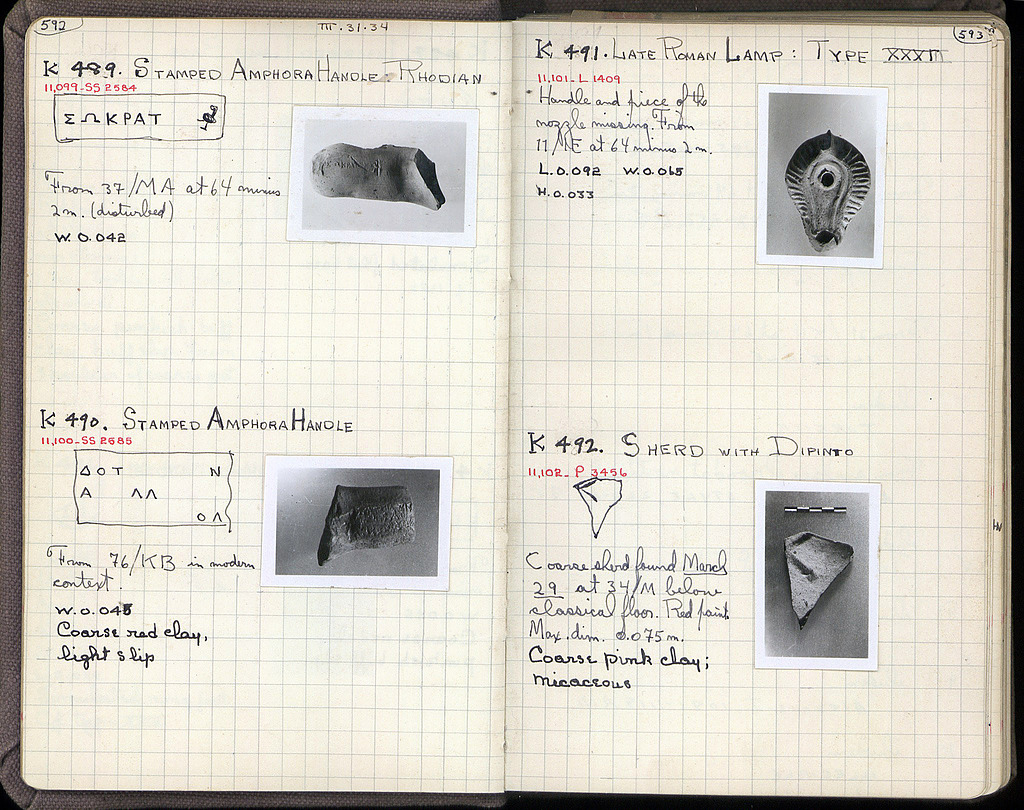 592
III.31.34
K 489. STAMPED AMPHORA HANDLE: RHODIAN
11,099-SS 2584
ΣΩΚΡΑΤ
From 37/MA at 64 minus
2 m. (disturbed)
W. 0.042
K 490. STAMPED AMPHORA HANDLE
11,100-SS 2585
ΔΟΤ Ν
Α ΛΛ
ΟΛ
From 76/KB in modern
context.
W. 0.045
Coarse red clay,
light slip
593
K 491. LATE ROMAN LAMP: TYPE
11,101-L 1409
Handle and piece of the
nozzle missing. From
11/ΛE at 64 minus 2 m.
L. 0.092 W. 0.065
H. 0.033
K 492. SHERD WITH DIPINTO
11,102-P 3456
Coarse sherd found March
29 at 34/M below
classical floor. Red paint.
Max. dim. 0.075 m.
Coarse pink clay;
micaceous